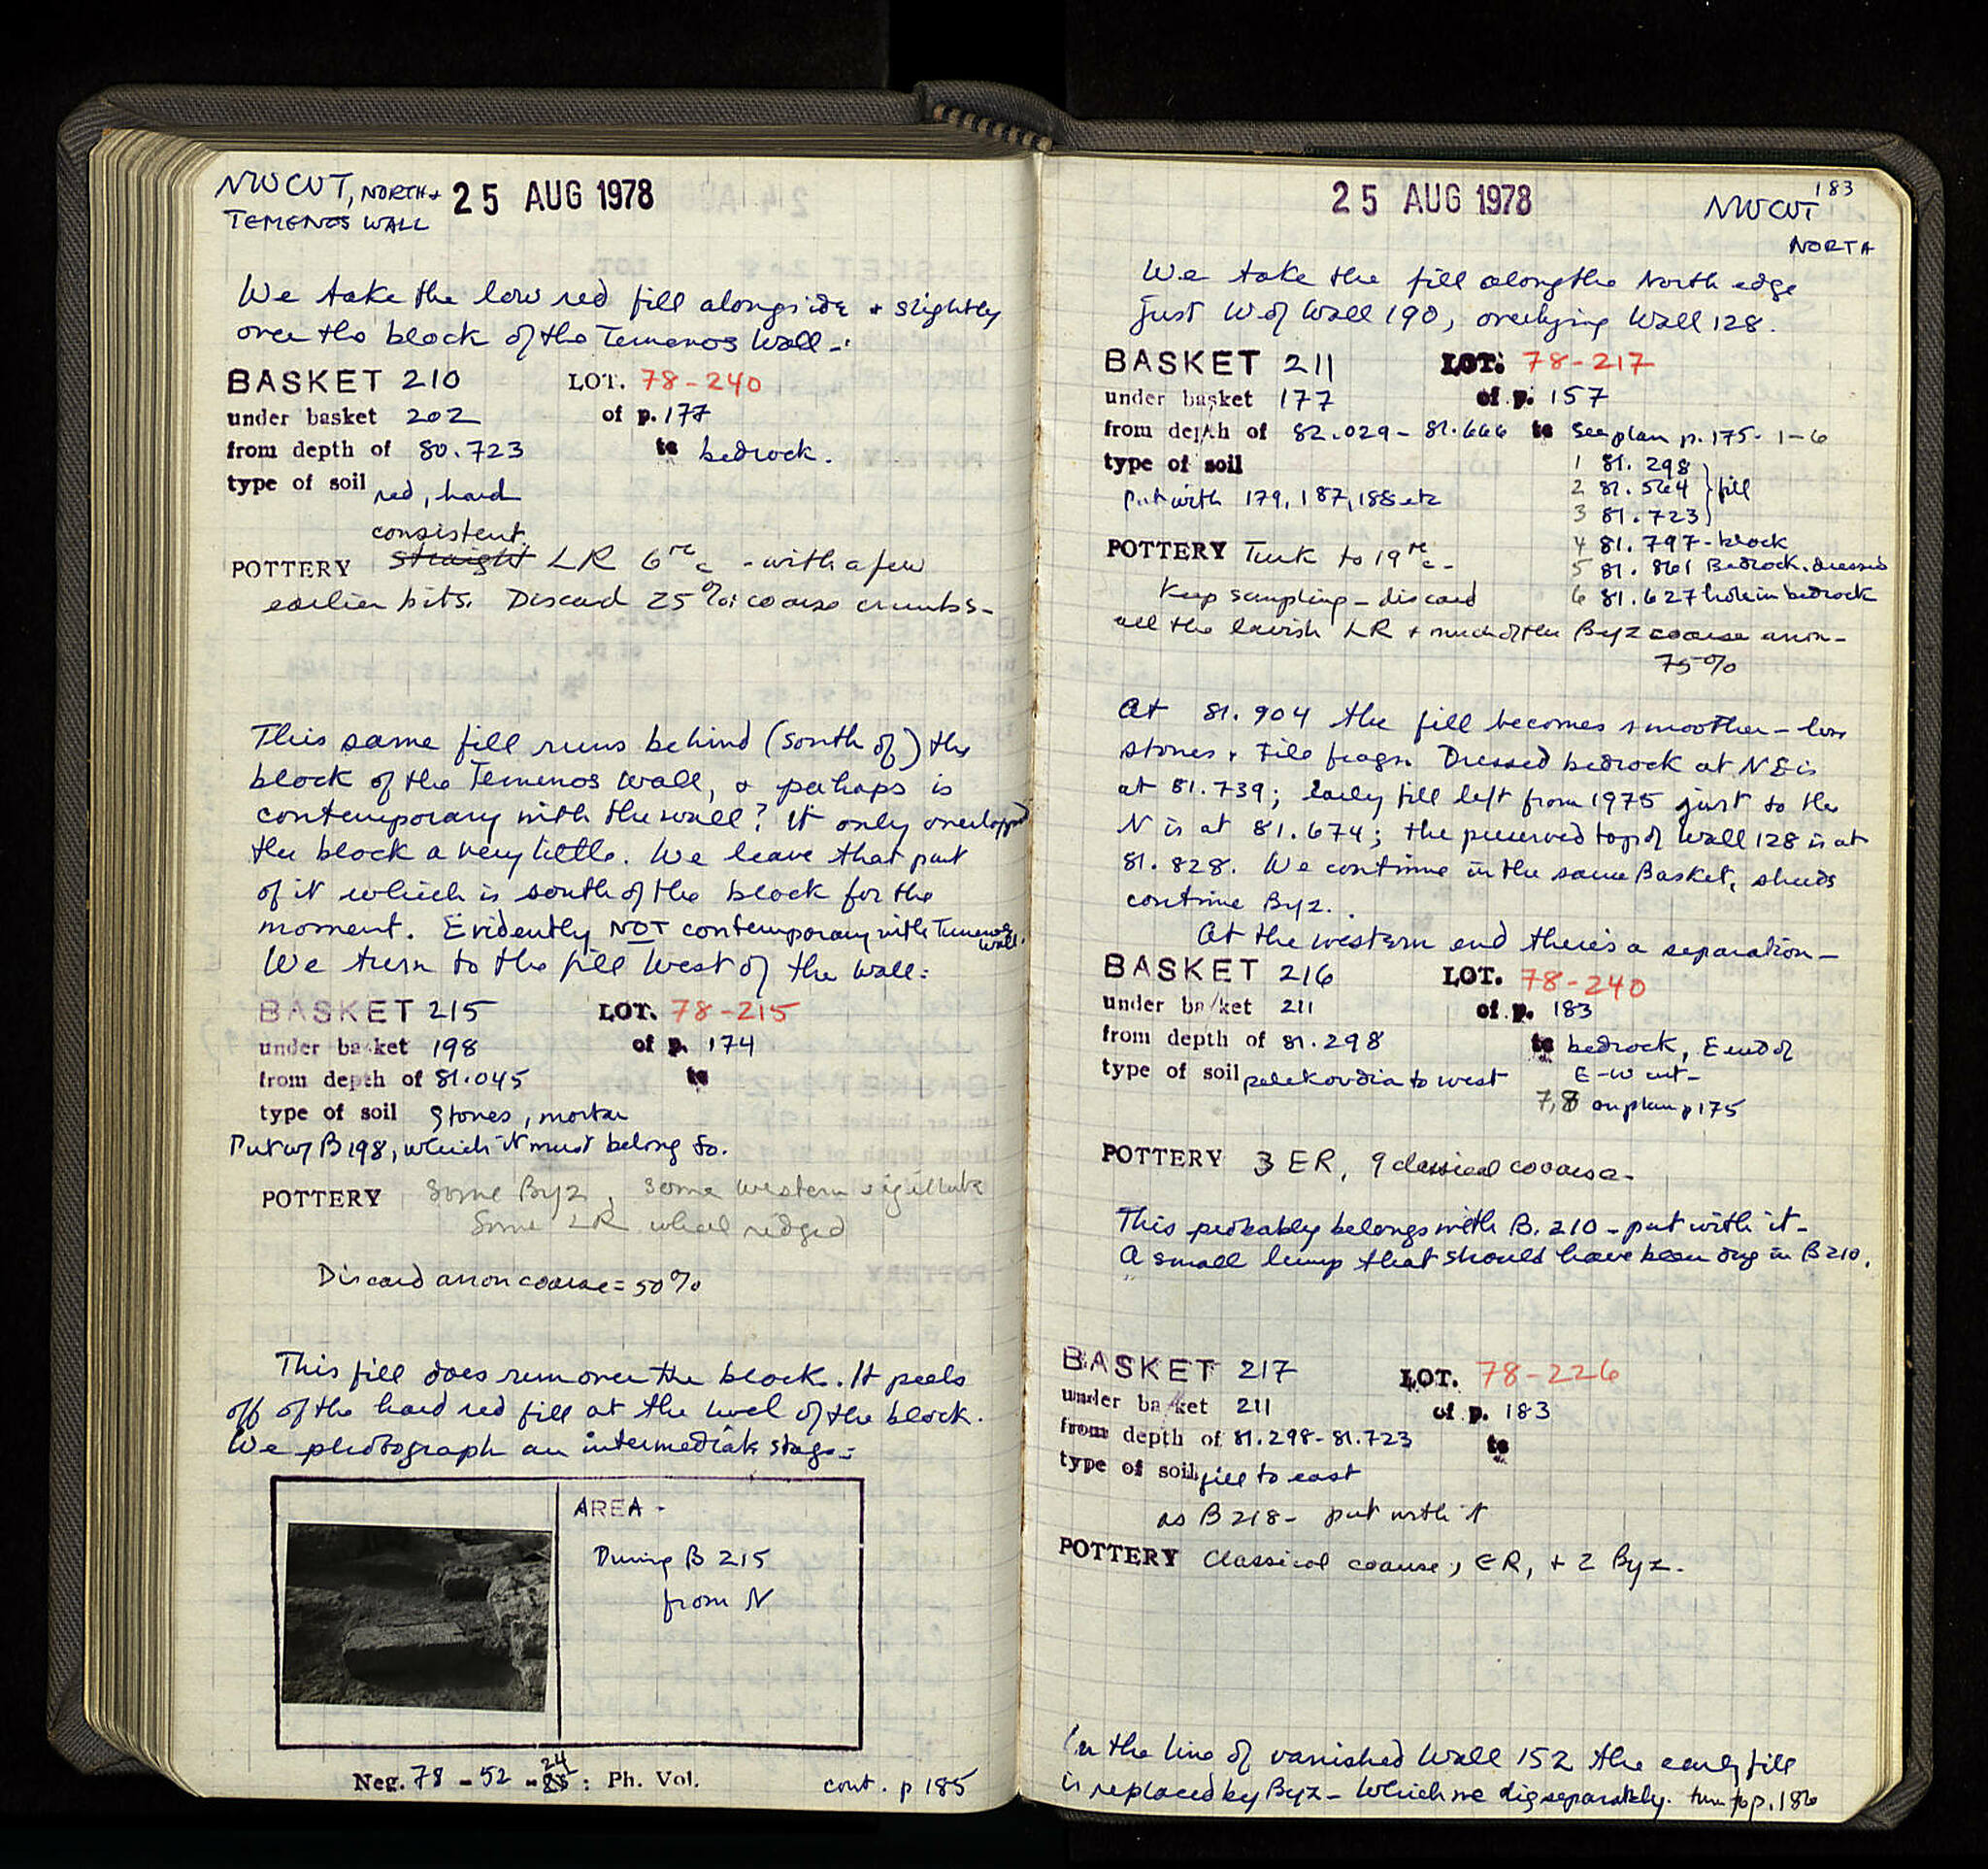 NW CUT, NORTH +
TEMENOS WALL
25 AUG 1978
We take the low red fill alongside + slightly
over the block of the Temenos Wall -:
BASKET 210 LOT. 78-240
under basket 202 of p. 177
from depth of 80.723 to bedrock.
type of soil red, hard
consistent
POTTERY straight LR 6th c - with a few
earlier bits. Discard 25% : coarse crumbs -
This same fill runs behind (south of) the
block of the Temenos Wall, + perhaps is
contemporary with the wall? It only overlapped
the block a very little. We leave that part
of it which is south of the block for the
moment. Evidently NOT contemporary with Temenos
wall.
We turn to the fill West of the Wall:
BASKET 215 LOT. 78-215
under basket 198 of p. 174
from depth of 81.045 to
type of soil stones, mortar
Put w/ B 198, which it must belong to.
POTTERY Some Byz, some western sigillata
Some LR wheel ridged
Discard anon coarse = 50%
This fill does run over the block. It peels
off of the hard red fill at the level of the block.
We photograph an intermediate stage:
AREA -
During B 215
from N
24
Neg. 78 - 52 - 25 : Ph. Vol.
cont. p 185
183
25 AUG 1978
NW CUT
NORTH
We take the fill along the North edge
just W of Wall 190, overlying Wall 128.
BASKET 211 LOT: 78-217
under basket 177 of p. 157
from depth of 82.029 - 81.666 to See plan p. 175. 1-6
type of soil
1 81.298
2 81.564 } fill
3 81.723
4 81.797 - block
5 81.861 Bedrock. dressed
6 81.627 hole in bedrock
Put with 179, 187, 188 etc
POTTERY Turk to 19th c -
Keep sampling - discard
all the lavish LR + much of the Byz coarse anon -
75%
At 81.904 the fill becomes smoother - less
stones + tile frags. Dressed bedrock at NE is
at 81.739; early fill left from 1975 just to the
N is at 81.674; the preserved top of Wall 128 is at
81.828. We continue in the same Basket, sherds
continue Byz.
At the western end there's a separation -
BASKET 216 LOT. 78-240
under basket 211 of p. 183
from depth of 81.298 to bedrock, E end of
E-W cut -
type of soil pelekoudia to west
7, 8 on plan p 175
POTTERY 3 ER, 9 classical coarse -
This probably belongs with B. 210 - put with it -
A small lump that should have been dug in B 210.
BASKET 217 LOT. 78-226
under basket 211 of p. 183
from depth of 81.298 - 81.723 to
type of soil fill to east
as B 218 - put with it
POTTERY Classical coarse, ER, + 2 Byz.
In the line of vanished Wall 152 the early fill
is replaced by Byz - which we dig separately. turn to p. 186